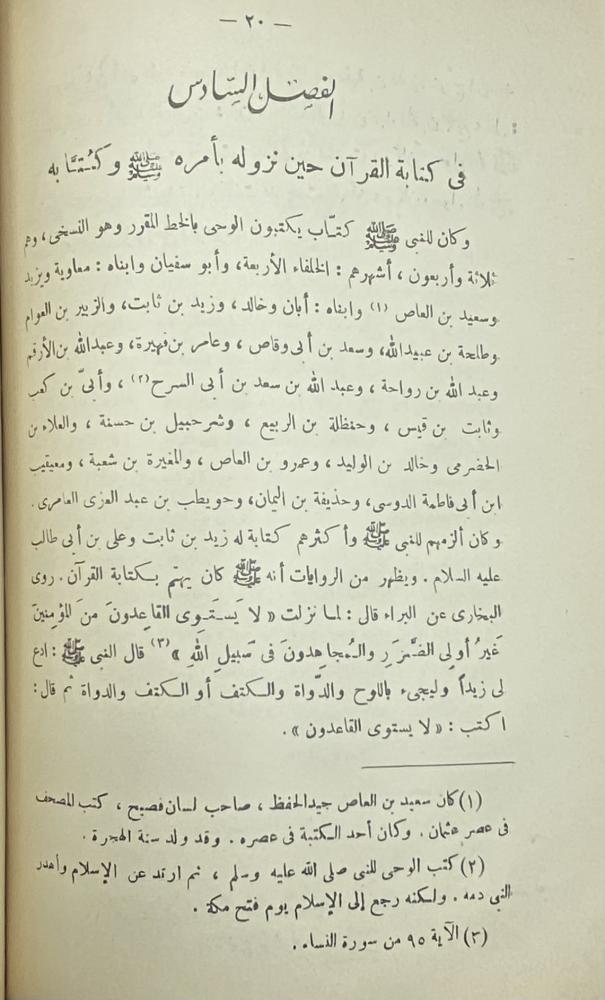 — ٢٠ —
الفصل السادس
فى كتابة القرآن حين نزوله بأمره ﷺ وكُتَّابه
وكان للنبى ﷺ كتّاب يكتبون الوحى بالخط المقرر وهو النسخى، وهم
ثلاثة وأربعون، أشهرهم : الخلفاء الأربعة، وأبو سفيان وابناه : معاوية ويزيد
وسعيد بن العاص (١) وابناه : أبان وخالد، وزيد بن ثابت، والزبير بن العوام
وطلحة بن عبيدالله، وسعد بن أبى وقاص، وعامر بن فهيرة، وعبدالله بن الأرقم
وعبد الله بن رواحة، وعبد الله بن سعد بن أبى السرح(٢)، وأبىّ بن كعب
وثابت بن قيس، وحنظلة بن الربيع، وشرحبيل بن حسنة، والعلاء بن
الحضرمى وخالد بن الوليد، وعمرو بن العاص، والمغيرة بن شعبة، ومعيقيب
ابن أبى فاطمة الدوسى، وحذيفة بن اليمان، وحويطب بن عبد العزى العامرى.
وكان ألزمهم للنبى ﷺ وأكثرهم كتابة له زيد بن ثابت وعلى بن أبى طالب
عليه السلام. ويظهر من الروايات أنه ﷺ كان يهتم بكتابة القرآن. روى
البخارى عن البراء قال : لما نزلت «لا يَستَوِى القاعدونَ منَ المؤمِنينَ
غَيرُ أولِى الضَّرَرِ والمُجاهِدونَ فى سَبيلِ اللهِ»(٣) قال النبى ﷺ : ادع
لى زيداً وليجىء باللوح والدَّواة والكتف أو الكتف والدواة ثم قال :
اكتب : «لا يستوى القاعدون».
(١) كان سعيد بن العاص جيدالحفظ، صاحب لسان فصيح، كتب المصحف
فى عصر عثمان. وكان أحد الكتبة فى عصره. وقد ولد سنة الهجرة.
(٢) كتب الوحى للنبى صلى الله عليه وسلم، ثم ارتد عن الإسلام وأهدر
النبى دمه. ولكنه رجع إلى الإسلام يوم فتح مكة.
(٣) الآية ٩٥ من سورة النساء.